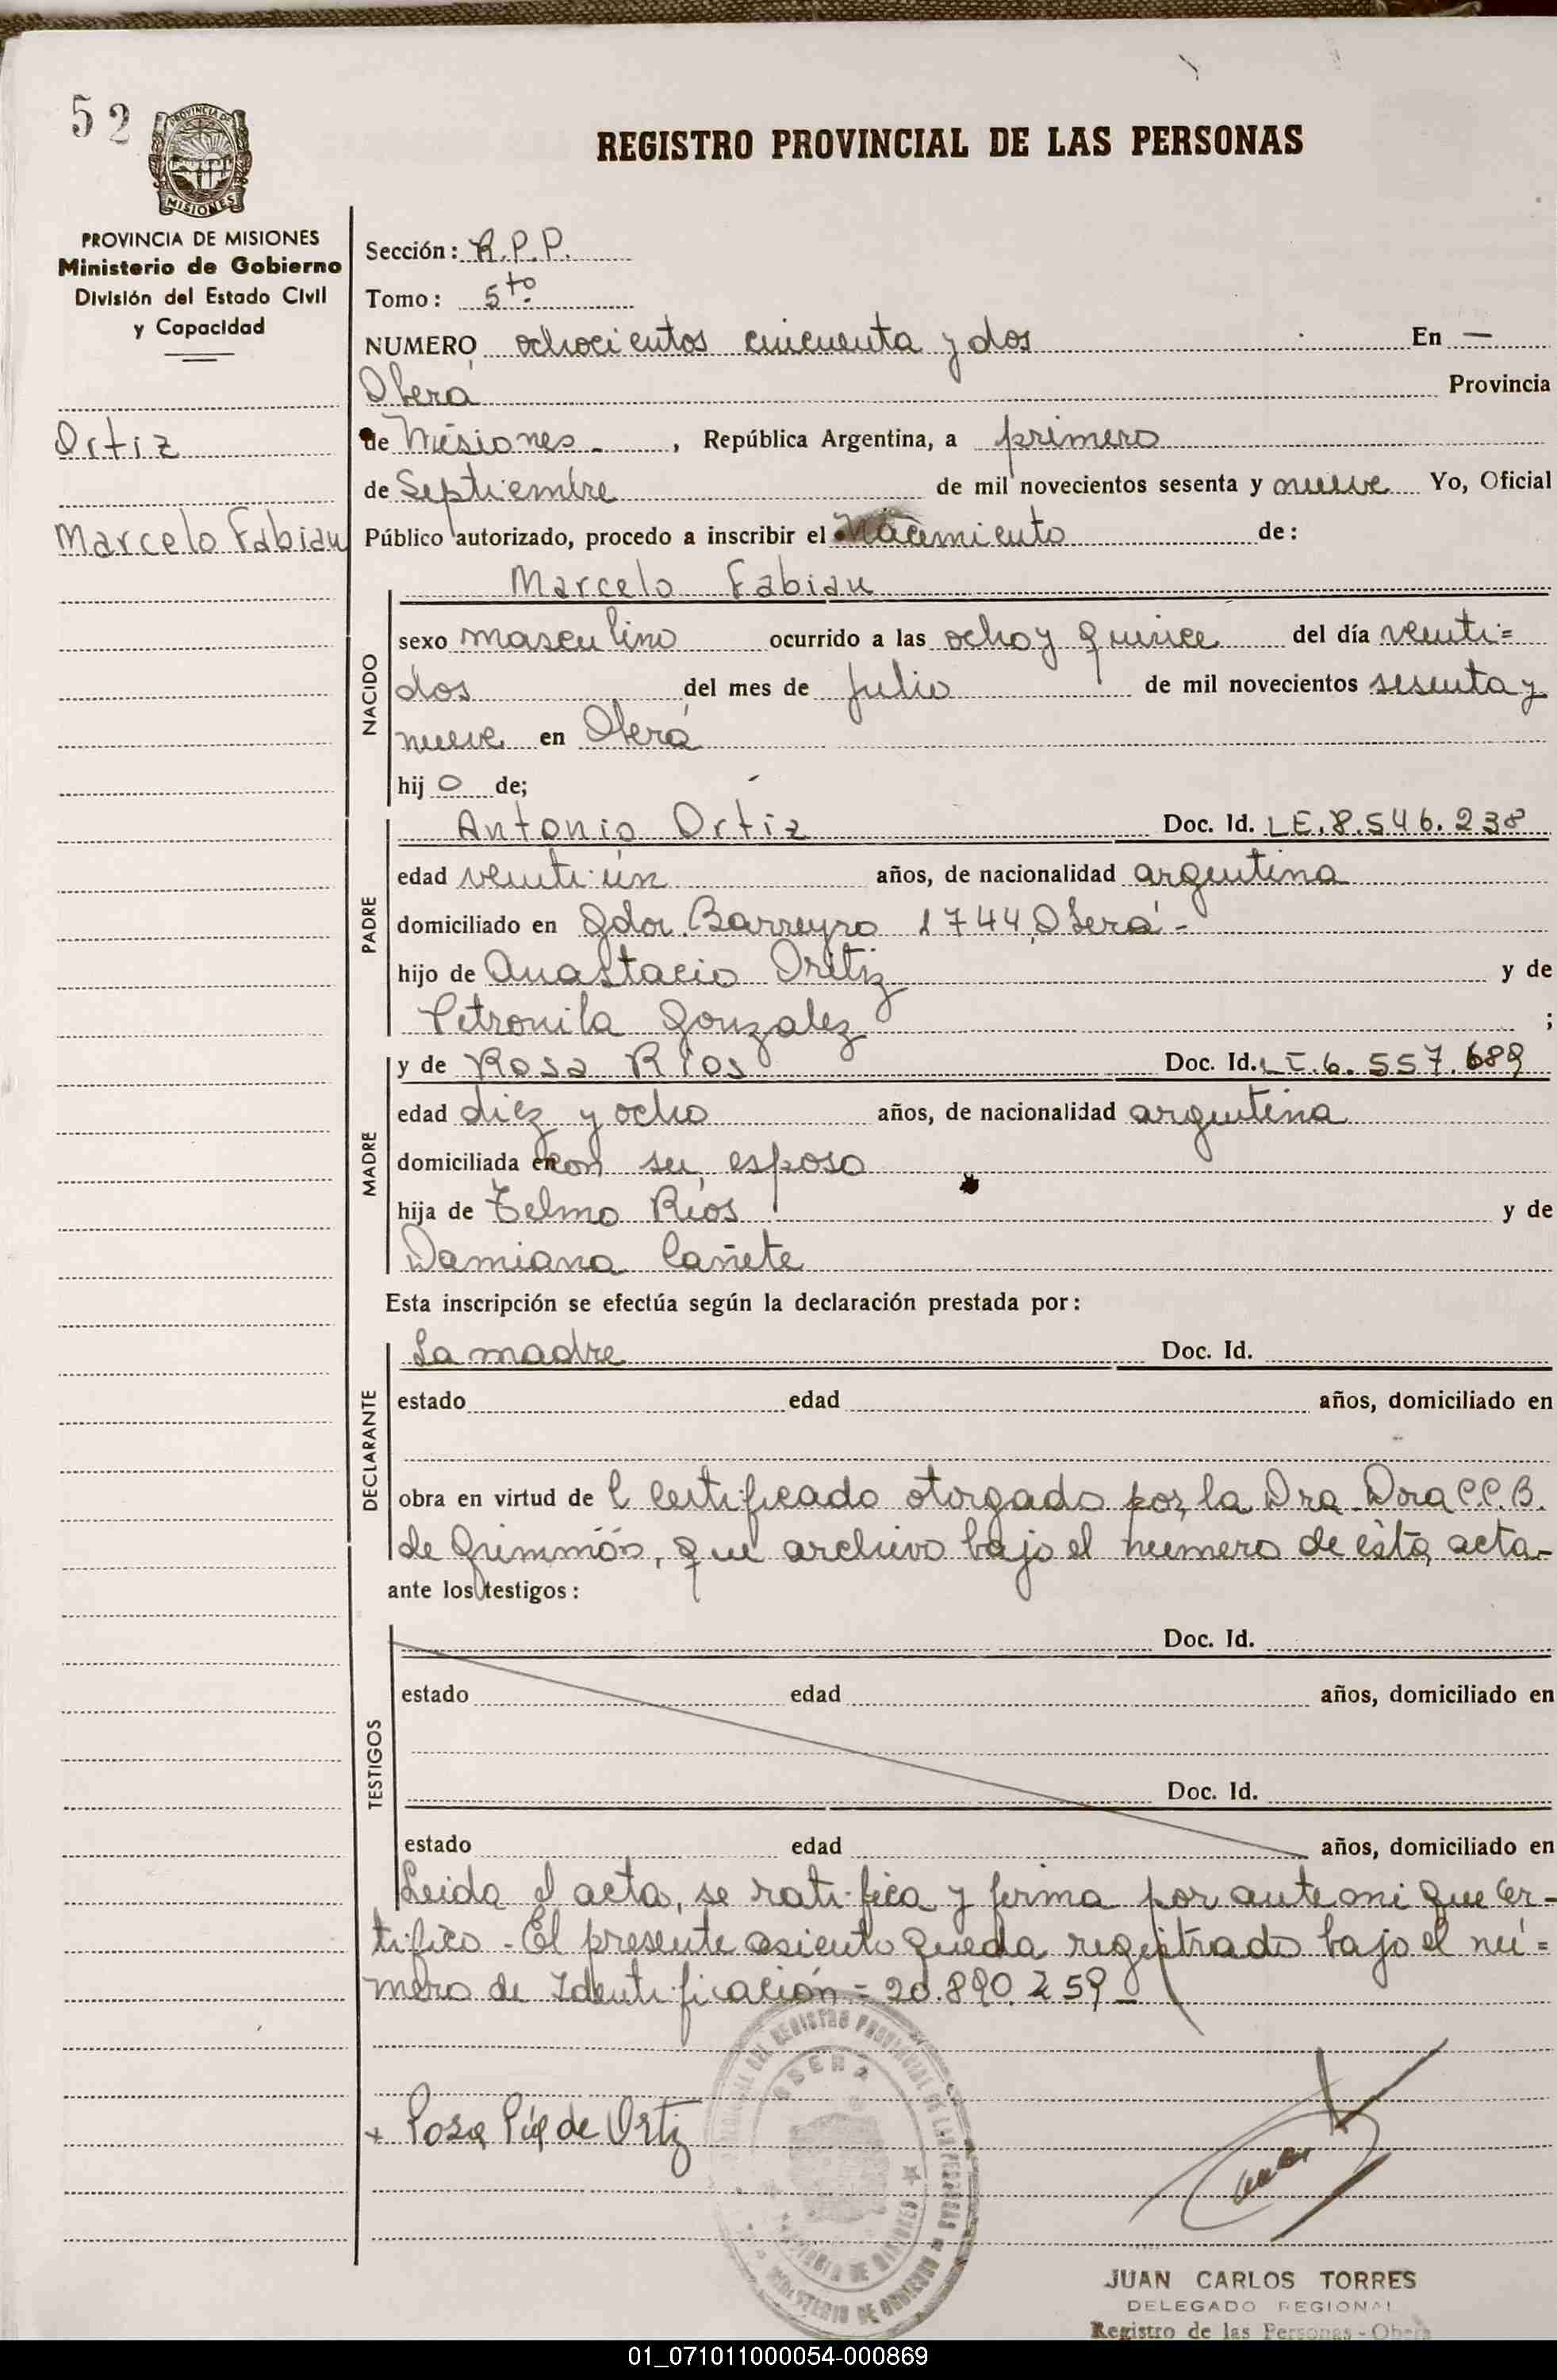 52
PROVINCIA DE
MISIONES
REGISTRO PROVINCIAL DE LAS PERSONAS
PROVINCIA DE MISIONES
Ministerio de Gobierno
División del Estado Civil
y Capacidad
Ortiz
Marcelo Fabian
Sección: R.P.P.
Tomo: 5to
NUMERO ochocientos cincuenta y dos En —
Oberá Provincia
de Misiones.-, República Argentina, a primero
de Septiembre de mil novecientos sesenta y nueve Yo, Oficial
Público autorizado, procedo a inscribir el Nacimiento de:
Marcelo Fabian
NACIDO
sexo masculino ocurrido a las ocho y quince del día venti=
dos del mes de Julio de mil novecientos sesenta y
nueve en Oberá
hijo de;
PADRE
Antonio Ortiz Doc. Id. LE.8.546.238
edad venti ún años, de nacionalidad argentina
domiciliado en Gdor. Barreyro 1744 Oberá -
hijo de Anastacio Oritiz y de
Petronila Gonzalez ;
MADRE
y de Rosa Ríos Doc. Id. LC.6.557.689
edad diez y ocho años, de nacionalidad argentina
domiciliada en con su esposo
hija de Telmo Ríos y de
Damiana Cañete
Esta inscripción se efectúa según la declaración prestada por:
DECLARANTE
La madre Doc. Id.
estado edad años, domiciliado en
obra en virtud de l certificado otorgado por la Dra. Dora C.C.B.
de Grimmós, que archivo bajo el numero de ésta acta-
ante los testigos:
TESTIGOS
Doc. Id.
estado edad años, domiciliado en
Doc. Id.
estado edad años, domiciliado en
Leida el acta, se ratifica y firma por ante mi que cer-
tifico.- El presente asiento queda registrado bajo el nú=
mero de Identificación = 20.890.259 -
+ Rosa Ríq de Ortiz
OBERA
JUAN CARLOS TORRES
DELEGADO REGIONAL
Registro de las Personas - Oberá
01_071011000054-000869